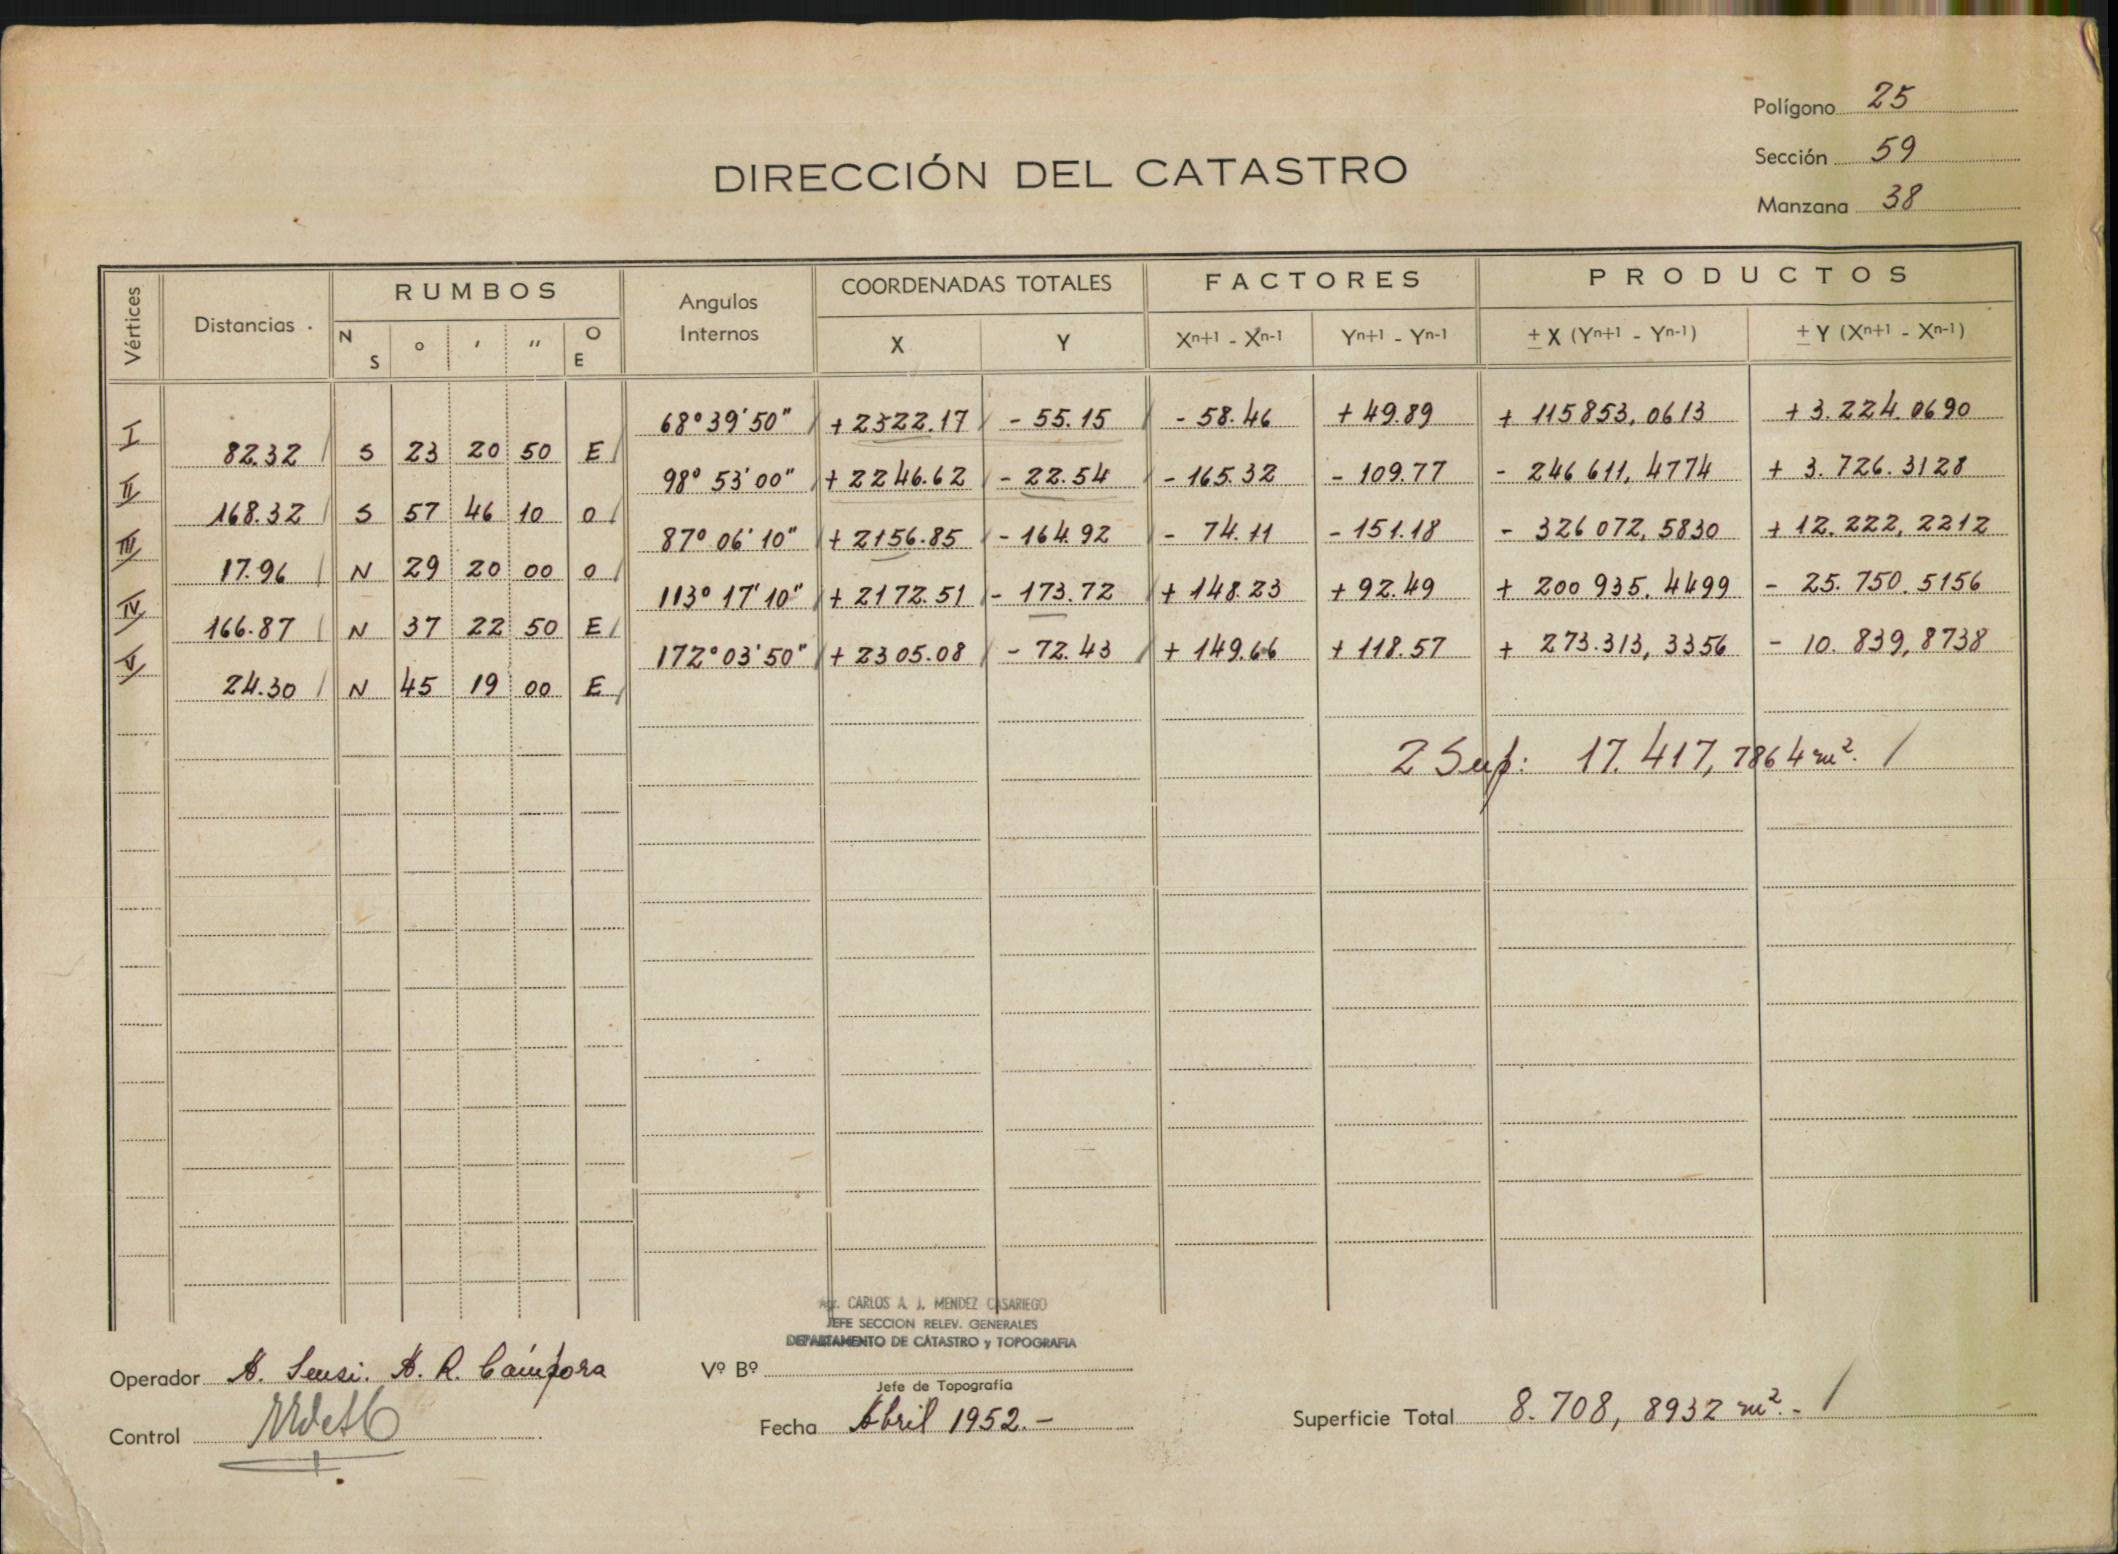 Polígono 25
Sección 59
Manzana 38
DIRECCIÓN DEL CATASTRO
Vértices Distancias . RUMBOS Angulos Internos COORDENADAS TOTALES FACTORES PRODUCTOS
N S ° ′ ″ O E X Y Xn+1 - Xn-1 Yn+1 - Yn-1 ± X (Yn+1 - Yn-1) ± Y (Xn+1 - Xn-1)
I 68°39'50" + 2322.17 - 55.15 - 58.46 + 49.89 + 115853,0613 + 3.224.0690
82.32 S 23 20 50 E
II 98° 53'00" + 2246.62 - 22.54 - 165.32 - 109.77 - 246 611, 4774 + 3.726.3128
168.32 S 57 46 10 O
III 87° 06'10" + 2156.85 - 164.92 - 74.11 - 151.18 - 326 072, 5830 + 12.222, 2212
17.96 N 29 20 00 O
IV 113° 17'10" + 2172.51 - 173.72 + 148.23 + 92.49 + 200 935. 4499 - 25.750.5156
166.87 N 37 22 50 E
V 172°03'50" + 2305.08 - 72.43 + 149.66 + 118.57 + 273.313, 3356 - 10.839,8738
24.30 N 45 19 00 E
2 Sup: 17.417, 7864 m².
Agr. CARLOS A. J. MENDEZ CASARIEGO
JEFE SECCION RELEV. GENERALES
DEPARTAMENTO DE CATASTRO y TOPOGRAFIA
Operador A. Sensi. A. R. Cámpora
Vº Bº
Jefe de Topografía
Control
Fecha Abril 1952.-
Superficie Total 8.708, 8932 m².-